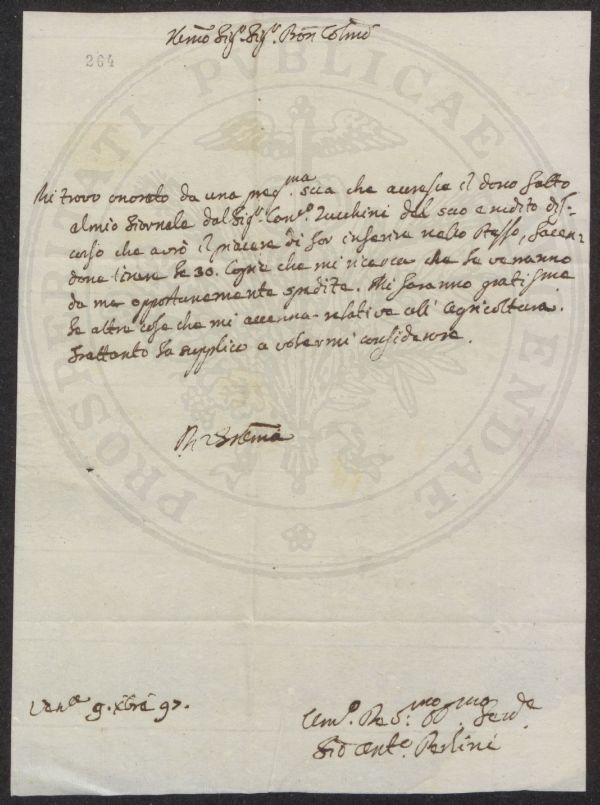 264
Sig.r Sig.r Pron Colmo
Mi trovo onorato da una preg.ma sua che accresce il dono fatto
al mio Giornale dal Sig.r Con.e Zucchini del suo erudito dis-
corso che avrò il piacere di far inserire nello stesso, facen-
done tirare le 30. Copie che mi ricerca che le veranno
da me opportunamente spedite. Mi saranno gratissime
le altre cose che mi accenna relative all' Agricoltura.
Frattanto la supplico a volermi considerare.
Ven.a 9. Xbre 97.
Um.o
Gio Ant.o
PROSPERITATI PUBLICAE AUGENDAE